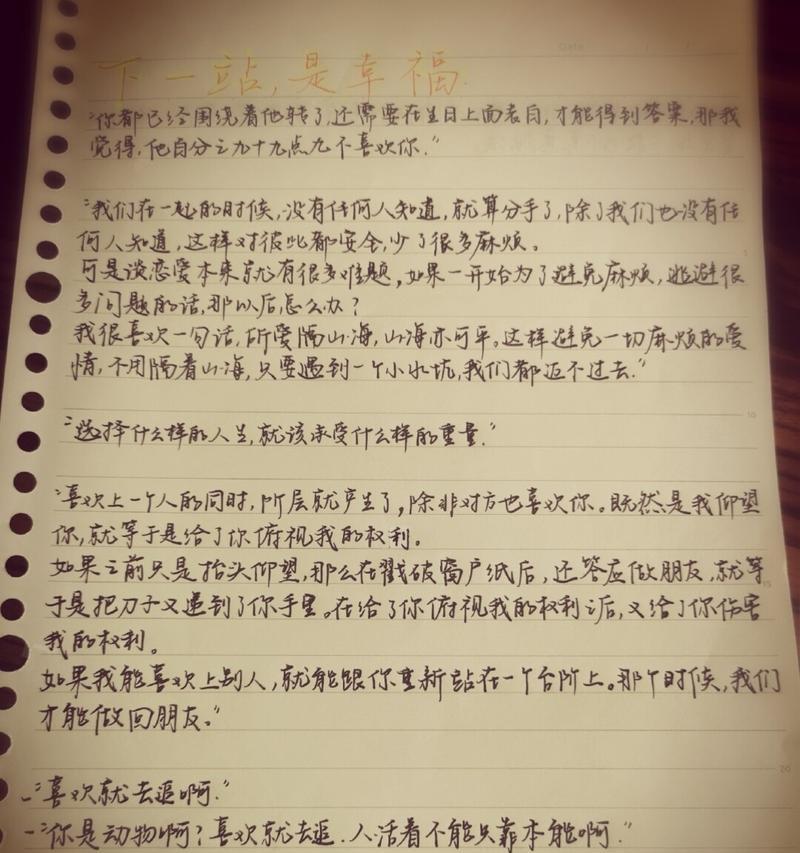 Date
下一站,是幸福.
“你都已经围绕着他转了,还需要在生日上面表白,才能得到答案,那我
觉得,他百分之九十九点九不喜欢你.”
“我们在一起的时候,没有任何人知道,就算分手了,除了我们也没有任
何人知道,这样对彼此都安全,少了很多麻烦。
可是谈恋爱本来就有很多难题,如果一开始为了避免麻烦,逃避很
多问题的话,那以后怎么办?
我很喜欢一句话,所爱隔山海,山海亦可平。这样避免一切麻烦的爱
情,不用隔着山海,只要遇到一个小水坑,我们都迈不过去.”
“选择什么样的人生,就该承受什么样的重量.”
“喜欢上一个人的同时,阶层就产生了,除非对方也喜欢你。既然是我仰望
你,就等于是给了你俯视我的权利。
如果之前只是抬头仰望,那么在戳破窗户纸后,还答应做朋友,就等
于是把刀子又递到了你手里。在给了你俯视我的权利之后,又给了你伤害
我的权利。
如果我能喜欢上别人,就能跟你重新站在一个台阶上。那个时候,我们
才能做回朋友。”
-“喜欢就去追啊.”
-“你是动物啊?喜欢就去追.人活着不能只靠本能啊.”